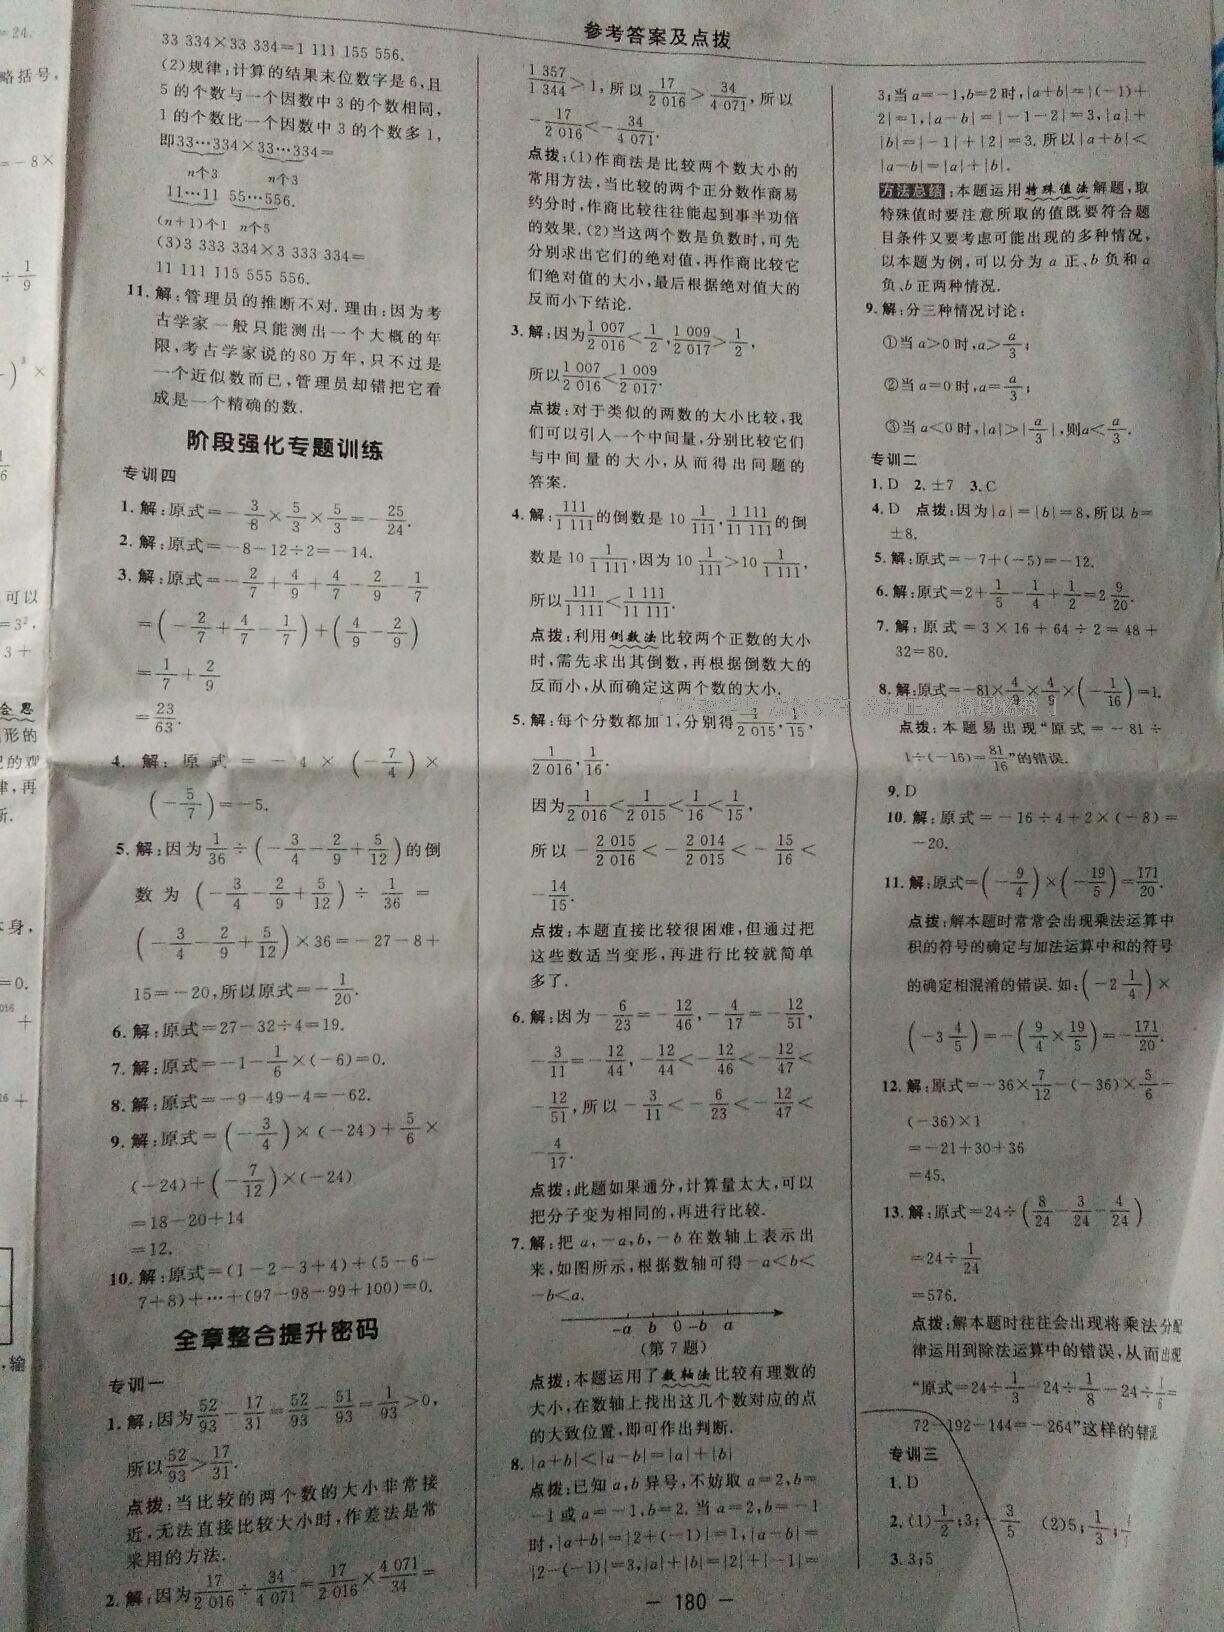 参考答案及点拨
33 334×33 334=1 111 155 556.
(2)规律:计算的结果末位数字是6,且
5的个数与一个因数中3的个数相同,
1的个数比一个因数中3的个数多1,
即33…334×33…334=
n个3 n个3
11…11 55…556.
(n+1)个1 n个5
(3)3 333 334×3 333 334=
11 111 115 555 556.
11. 解:管理员的推断不对.理由:因为考
古学家一般只能测出一个大概的年
限,考古学家说的80万年,只不过是
一个近似数而已,管理员却错把它看
成是一个精确的数.
阶段强化专题训练
专训四
1. 解:原式=-3/8×5/3×5/3=-25/24.
2. 解:原式=-8-12÷2=-14.
3. 解:原式=-2/7+4/9+4/7-2/9-1/7
=(-2/7+4/7-1/7)+(4/9-2/9)
=1/7+2/9
=23/63.
4. 解:原式=-4×(-7/4)×
(-5/7)=-5.
5. 解:因为1/36÷(-3/4-2/9+5/12)的倒
数为(-3/4-2/9+5/12)÷1/36=
(-3/4-2/9+5/12)×36=-27-8+
15=-20,所以原式=-1/20.
6. 解:原式=27-32÷4=19.
7. 解:原式=-1-1/6×(-6)=0.
8. 解:原式=-9-49-4=-62.
9. 解:原式=(-3/4)×(-24)+5/6×
(-24)+(-7/12)×(-24)
=18-20+14
=12.
10. 解:原式=(1-2-3+4)+(5-6-
7+8)+…+(97-98-99+100)=0.
全章整合提升密码
专训一
1. 解:因为52/93-17/31=52/93-51/93=1/93>0,
所以52/93>17/31.
点拨:当比较的两个数的大小非常接
近,无法直接比较大小时,作差法是常
采用的方法.
2. 解:因为17/2 016÷34/4 071=17/2 016×4 071/34=
1 357/1 344>1,所以17/2 016>34/4 071,所以
-17/2 016<-34/4 071.
点拨:(1)作商法是比较两个数大小的
常用方法,当比较的两个正分数作商易
约分时,作商比较往往能起到事半功倍
的效果.(2)当这两个数是负数时,可先
分别求出它们的绝对值,再作商比较它
们绝对值的大小,最后根据绝对值大的
反而小下结论.
3. 解:因为1 007/2 016<1/2,1 009/2 017>1/2,
所以1 007/2 016<1 009/2 017.
点拨:对于类似的两数的大小比较,我
们可以引入一个中间量,分别比较它们
与中间量的大小,从而得出问题的
答案.
4. 解:111/1 111的倒数是10 1/111,1 111/11 111的倒
数是10 1/1 111,因为10 1/111>10 1/1 111,
所以111/1 111<1 111/11 111.
点拨:利用倒数法比较两个正数的大小
时,需先求出其倒数,再根据倒数大的
反而小,从而确定这两个数的大小.
5. 解:每个分数都加1,分别得1/2 015,1/15,
1/2 016,1/16.
因为1/2 016<1/2 015<1/16<1/15,
所以-2 015/2 016<-2 014/2 015<-15/16<
-14/15.
点拨:本题直接比较很困难,但通过把
这些数适当变形,再进行比较就简单
多了.
6. 解:因为-6/23=-12/46,-4/17=-12/51,
-3/11=-12/44,-12/44<-12/46<-12/47<
-12/51,所以-3/11<-6/23<-12/47<
-4/17.
点拨:此题如果通分,计算量太大,可以
把分子变为相同的,再进行比较.
7. 解:把a,-a,b,-b在数轴上表示出
来,如图所示,根据数轴可得-a<b<
-b<a.
-a b 0 -b a
(第7题)
点拨:本题运用了数轴法比较有理数的
大小,在数轴上找出这几个数对应的点
的大致位置,即可作出判断.
8. |a+b|<|a-b|=|a|+|b|
点拨:已知a,b异号,不妨取a=2,b=
-1或a=-1,b=2.当a=2,b=-1
时,|a+b|=|2+(-1)|=1,|a-b|=
|2-(-1)|=3,|a|+|b|=|2|+|-1|=
3;当a=-1,b=2时,|a+b|=|(-1)+
2|=1,|a-b|=|-1-2|=3,|a|+
|b|=|-1|+|2|=3.所以|a+b|<
|a-b|=|a|+|b|.
方法总结:本题运用特殊值法解题,取
特殊值时要注意所取的值既要符合题
目条件又要考虑可能出现的多种情况,
以本题为例,可以分为a正、b负和a
负、b正两种情况.
9. 解:分三种情况讨论:
①当a>0时,a>a/3;
②当a=0时,a=a/3;
③当a<0时,|a|>|a/3|,则a<a/3.
专训二
1. D 2. ±7 3. C
4. D 点拨:因为|a|=|b|=8,所以b=
±8.
5. 解:原式=-7+(-5)=-12.
6. 解:原式=2+1/5-1/4+1/2=2 9/20.
7. 解:原式=3×16+64÷2=48+
32=80.
8. 解:原式=-81×4/9×4/9×(-1/16)=1.
点拨:本题易出现“原式=-81÷
1÷(-16)=81/16”的错误.
9. D
10. 解:原式=-16÷4+2×(-8)=
-20.
11. 解:原式=(-9/4)×(-19/5)=171/20.
点拨:解本题时常常会出现乘法运算中
积的符号的确定与加法运算中和的符号
的确定相混淆的错误.如:(-2 1/4)×
(-3 4/5)=-(9/4×19/5)=-171/20.
12. 解:原式=-36×7/12-(-36)×5/6-
(-36)×1
=-21+30+36
=45.
13. 解:原式=24÷(8/24-3/24-4/24)
=24÷1/24
=576.
点拨:解本题时往往会出现将乘法分配
律运用到除法运算中的错误,从而出现
“原式=24÷1/3-24÷1/8-24÷1/6=
72-192-144=-264”这样的错误
专训三
1. D
2. (1)1/2;3;-3/5 (2)5;1/3;
3. 3;5
- 180 -